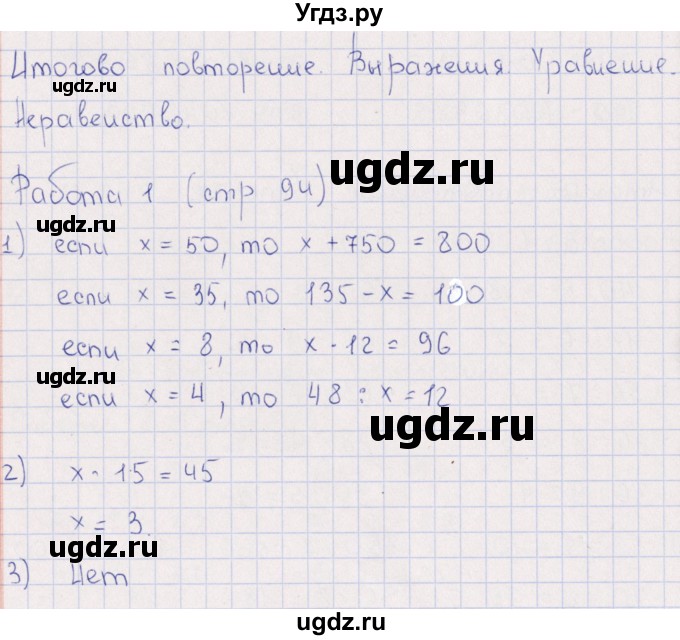 Угдз.ру
Итогово повторение. Выражения. Уравнение.
ugdz.ru
Неравенство.
ugdz.ru
Работа 1 (стр 94)
ugdz.ru
1) если x = 50, то x + 750 = 800
если x = 35, то 135 - x = 100
если x = 8, то x · 12 = 96
ugdz.ru
если x = 4, то 48 : x = 12
ugdz.ru
2) x · 15 = 45
x = 3.
ugdz.ru
3) Нет
ugdz.ru